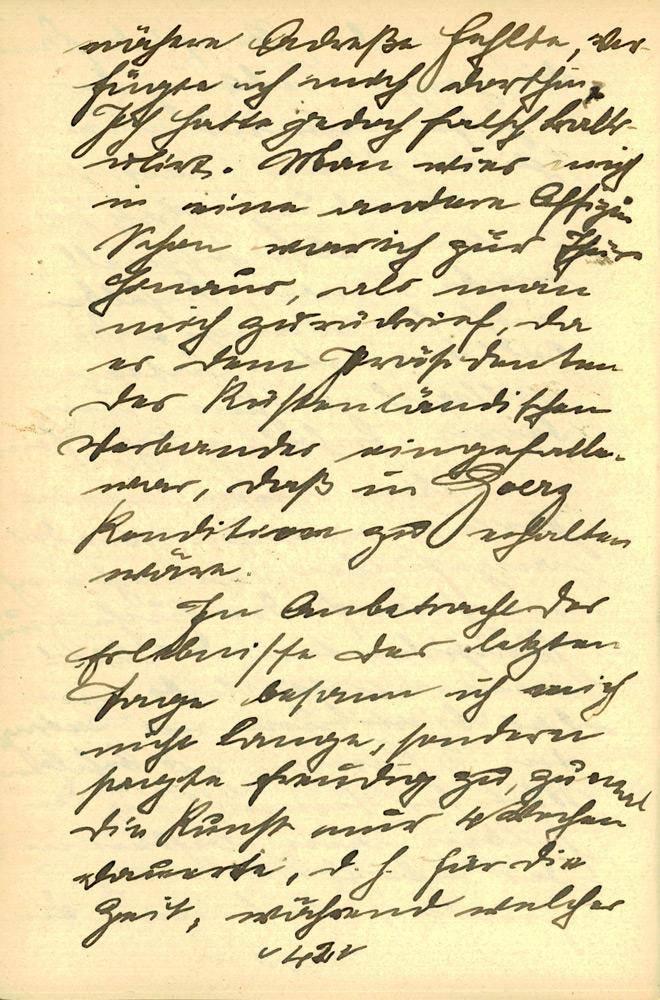 nähere Adreße fehlte, ver-
fügte ich mich dorthin.
Ich hatte jedoch falsch kalk-
ulirt. Man wies mich
in eine andere Offizin
Schon war ich zur Thür
hinaus, als man
mich zurückrief, da
es dem Präsidenten
des Küstenländischen
Verbandes eingefalle.
war, daß in Goerz
Kondition zu erhalten
wäre.
In Anbetracht der
Erlebnisse der letzten
Tage besann ich mich
nicht lange, sondern
sagte freudig zu, zumal
die Kunst nur 4 Wochen
dauerte, d. h. für die
Zeit, während welcher
"42"